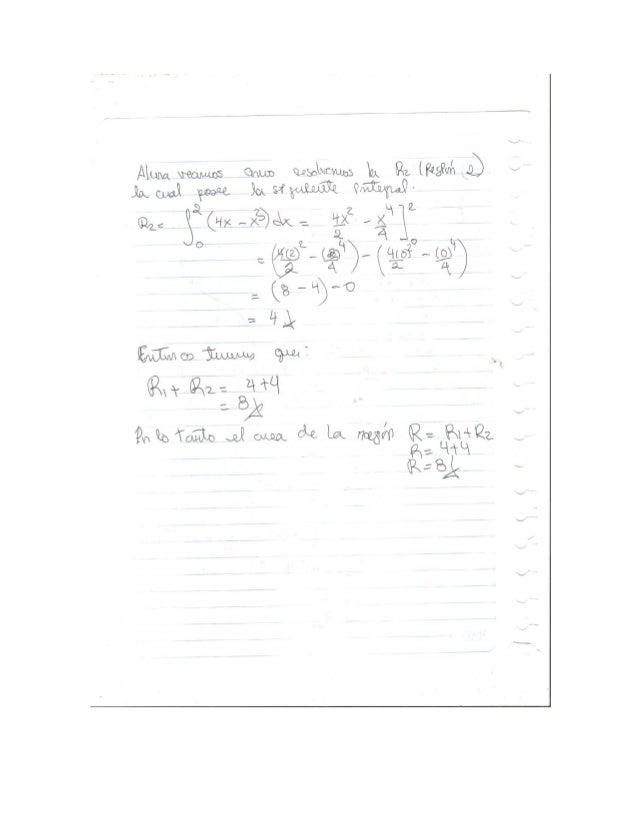 Ahora veamos como resolvemos la R2 (Región 2)
la cual posee la siguiente integral.
R2 = ∫₀² (4x - x³) dx = 4x²/2 - x⁴/4 ]₀²
= (4(2)²/2 - (2)⁴/4) - (4(0)²/2 - (0)⁴/4)
= (8 - 4) - 0
= 4
Entonces tenemos que:
R1 + R2 = 4+4
= 8
Por lo tanto el area de la región R = R1 + R2
R = 4+4
R = 8